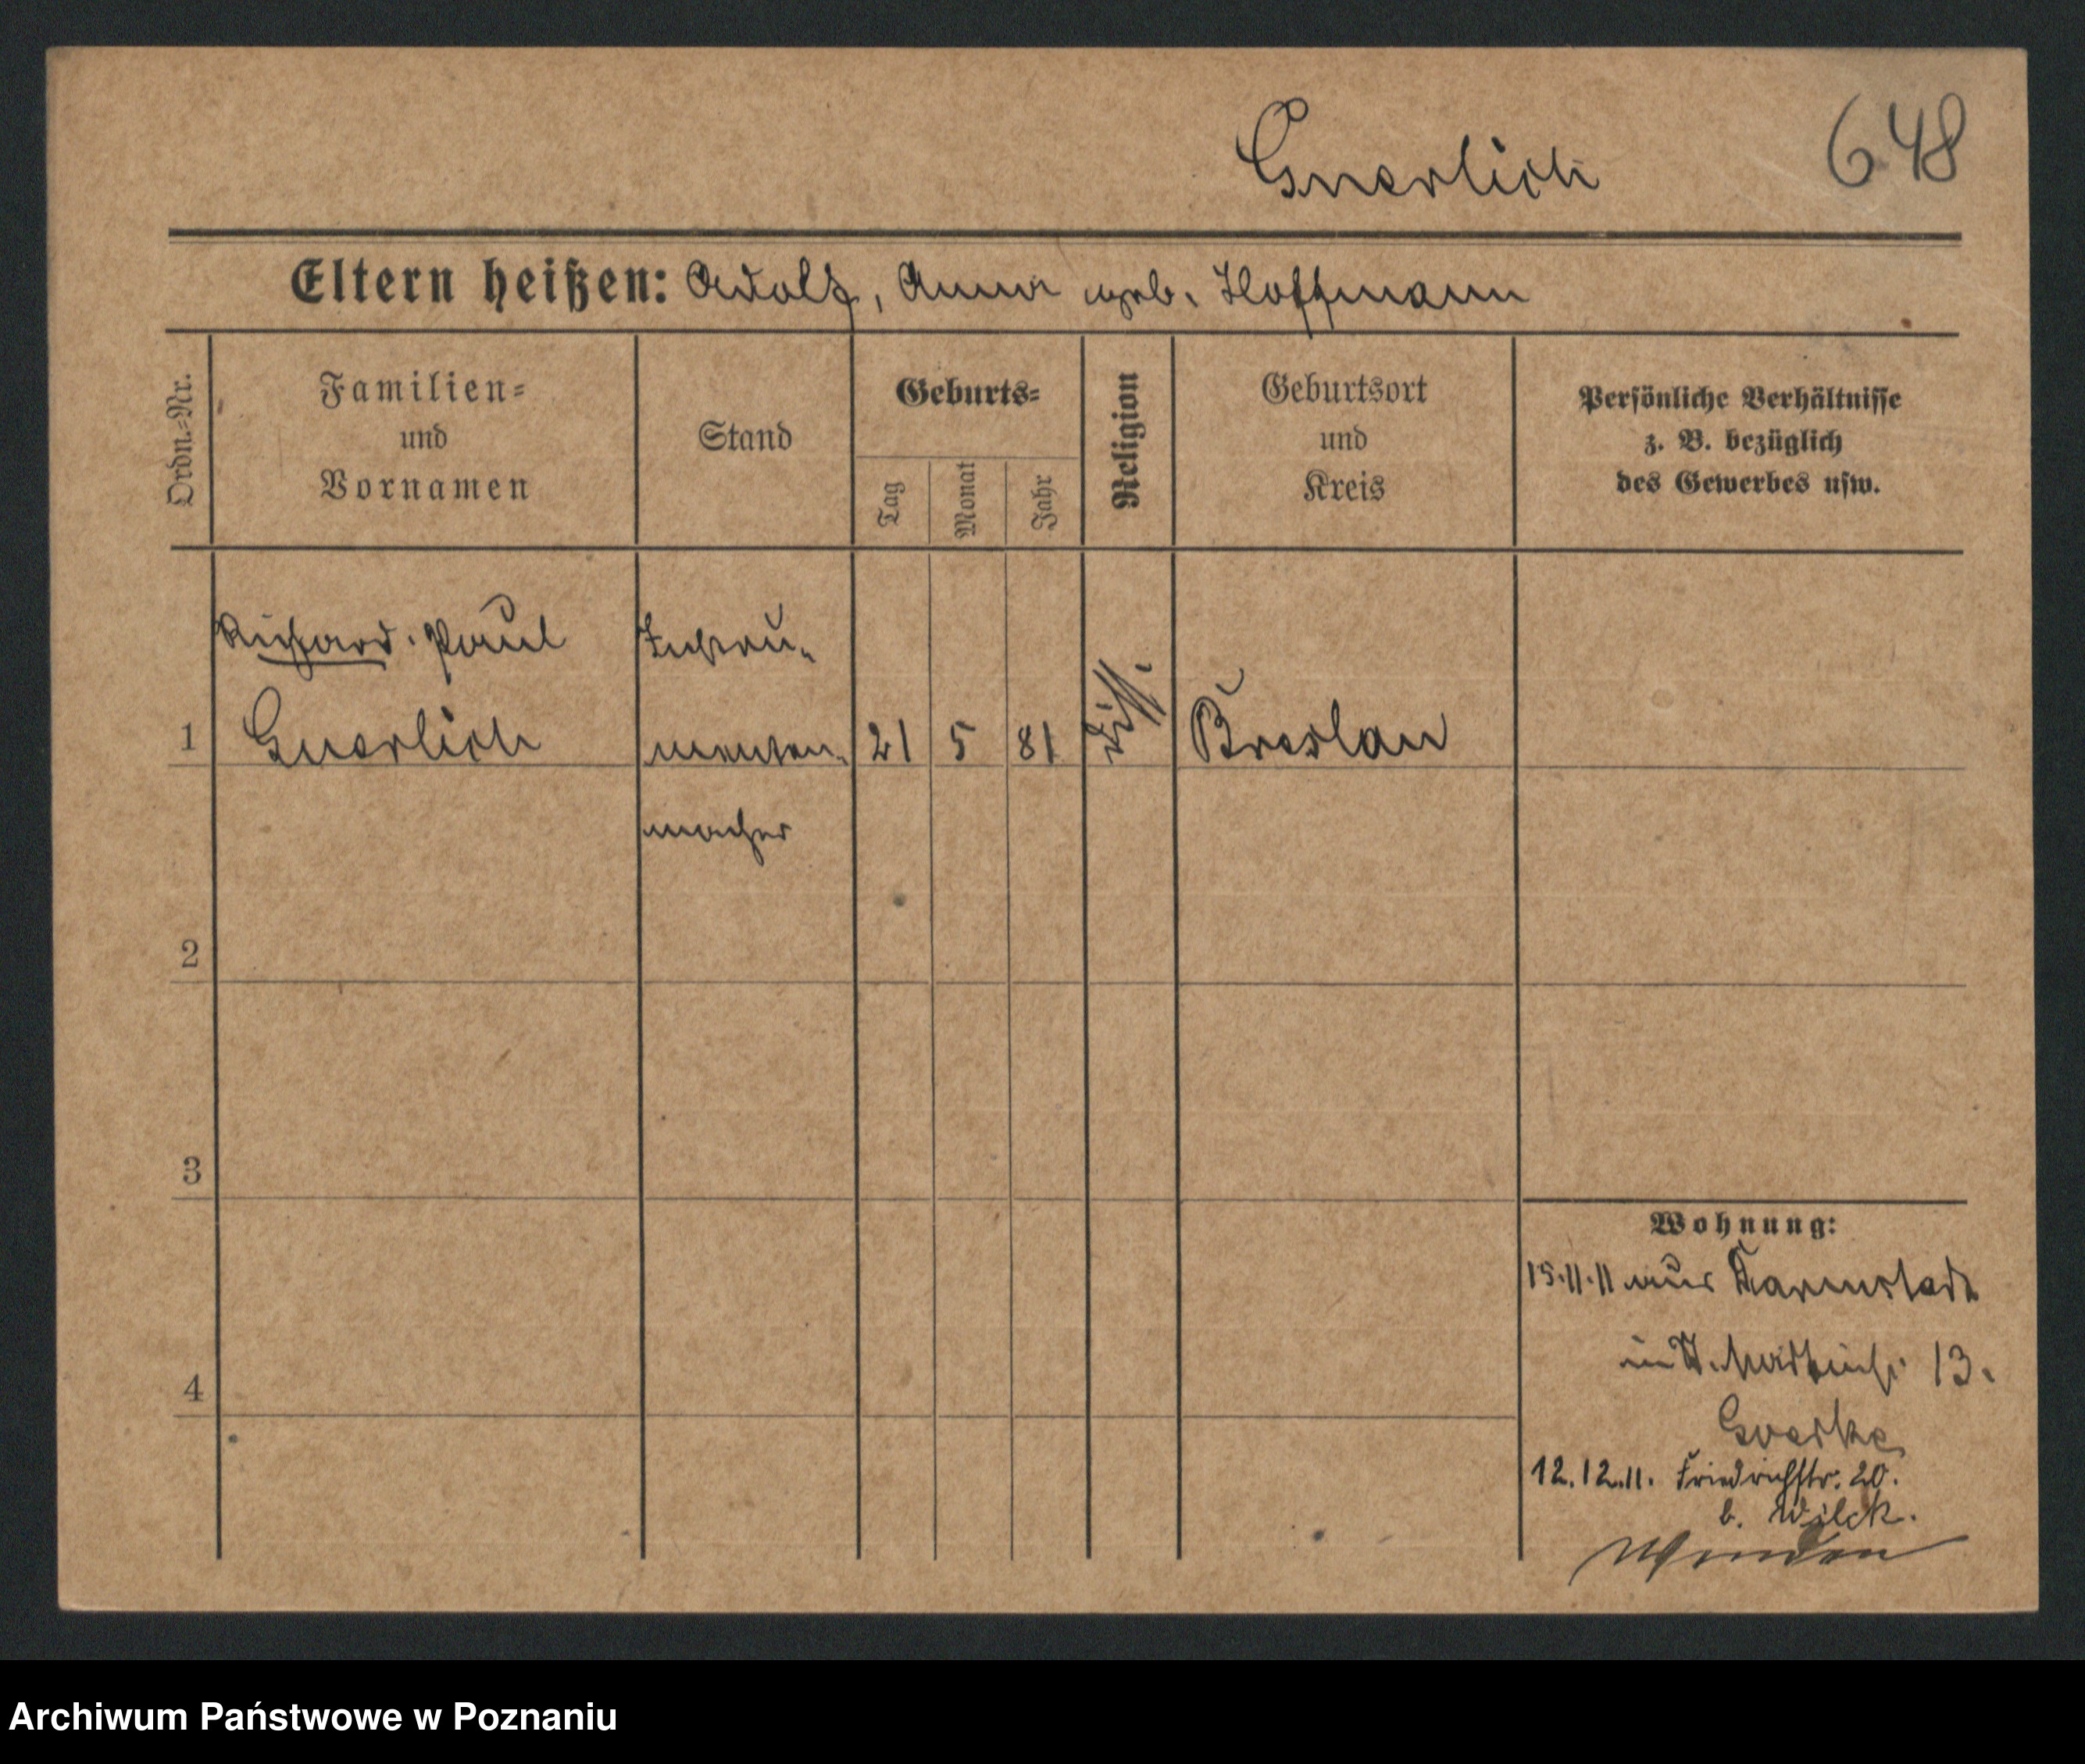 Gnerlich 648
Eltern heißen: Adolf, Anna geb. Hoffmann
Ordn.=Nr.
Familien=
und
Vornamen
Stand
Geburts=
Tag
Monat
Jahr
Religion
Geburtsort
und
Kreis
Persönliche Verhältnisse
z. B. bezüglich
des Gewerbes usw.
1
Richard Paul
Gnerlich
Instru-
menten-
macher
21 5 81
diss.
Breslau
2
3
4
Wohnung:
15.11.11 aus Darmstadt
in 13.
12.12.11. Friedrichstr. 20.
b. Wilck.
Wenden
Archiwum Państwowe w Poznaniu